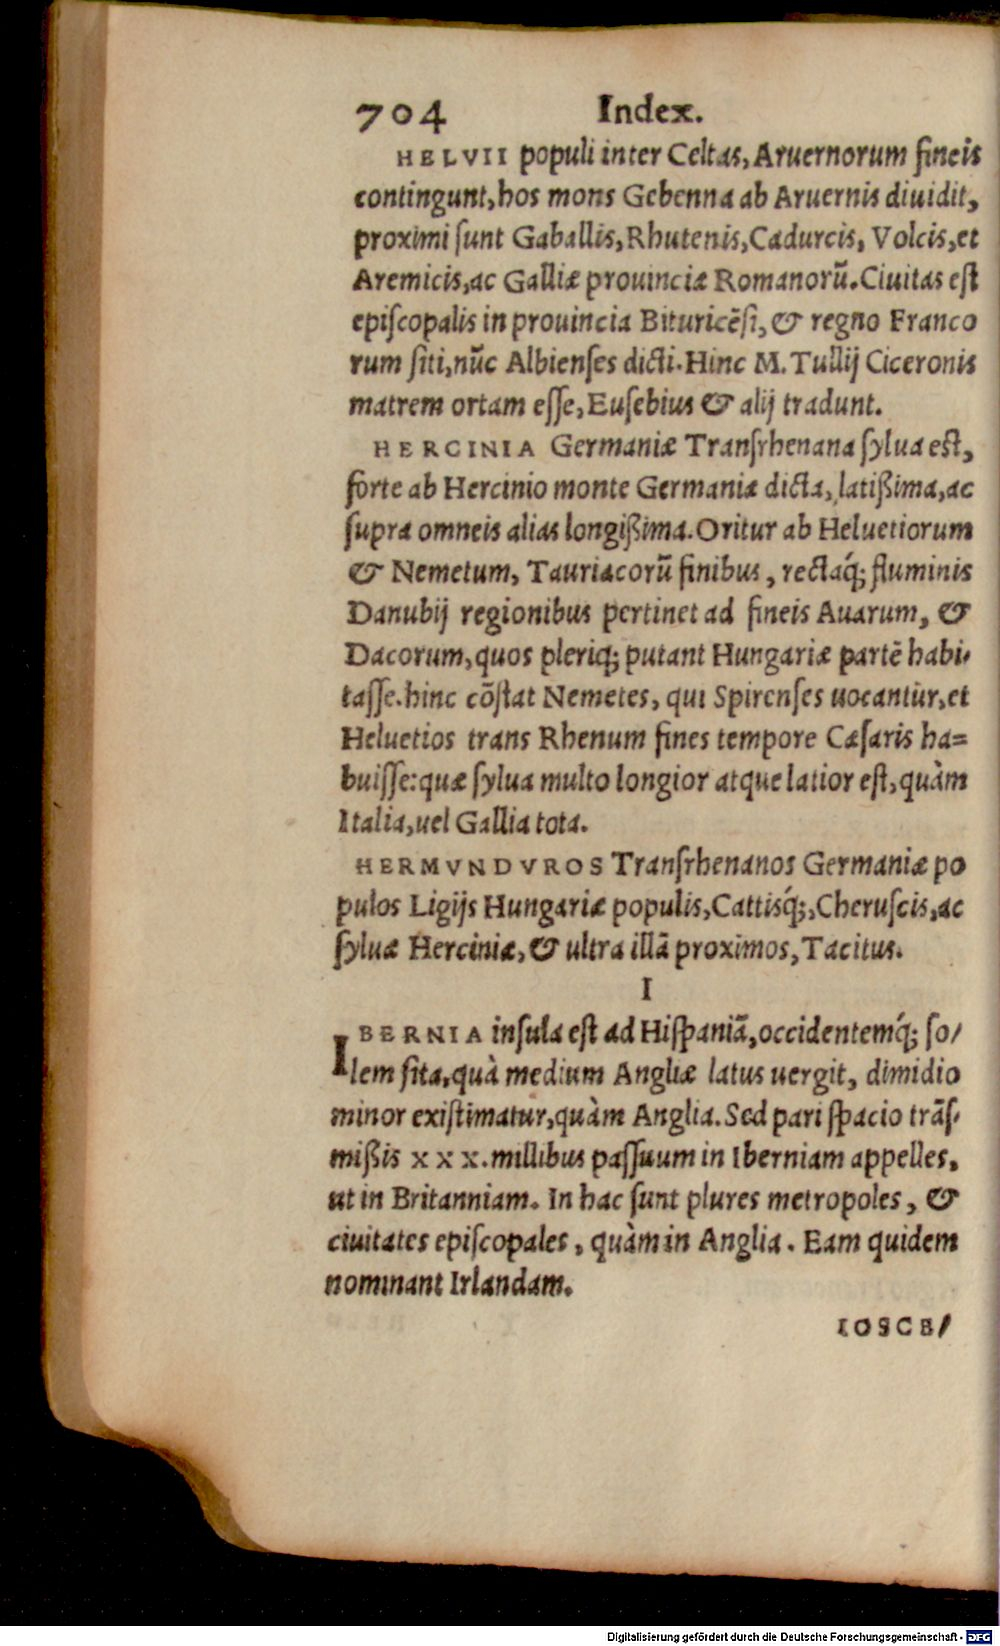 704 Index.
HELVII populi inter Celtas, Aruernorum fineis
contingunt, hos mons Gebenna ab Aruernis diuidit,
proximi ſunt Gaballis, Rhutenis, Cadurcis, Volcis, et
Aremicis, ac Galliæ prouinciæ Romanorũ. Ciuitas eſt
epiſcopalis in prouincia Bituricẽſi, & regno Franco
rum ſiti, nũc Albienſes dicti. Hinc M. Tullij Ciceronis
matrem ortam eſſe, Euſebius & alij tradunt.
HERCINIA Germaniæ Tranſrhenana ſylua eſt,
forte ab Hercinio monte Germaniæ dicta, latißima, ac
ſupra omneis alias longißima. Oritur ab Heluetiorum
& Nemetum, Tauriacorũ finibus, rectaq́; fluminis
Danubij regionibus pertinet ad fineis Auarum, &
Dacorum, quos pleriq; putant Hungariæ partẽ habi-
taſſe. hinc cõſtat Nemetes, qui Spirenſes uocantur, et
Heluetios trans Rhenum fines tempore Cæſaris ha=
buiſſe: quæ ſylua multo longior atque latior eſt, quàm
Italia, uel Gallia tota.
HERMVNDVROS Tranſrhenanos Germaniæ po
pulos Ligijs Hungariæ populis, Cattisq́;, Cheruſcis, ac
ſyluæ Herciniæ, & ultra illã proximos, Tacitus.
I
IBERNIA inſula eſt ad Hiſpaniã, occidentemq́; ſo/
lem ſita, quà medium Angliæ latus uergit, dimidio
minor exiſtimatur, quàm Anglia. Sed pari ſpacio trãſ-
mißis XXX. millibus paſſuum in Iberniam appelles,
ut in Britanniam. In hac ſunt plures metropoles, &
ciuitates epiſcopales, quàm in Anglia. Eam quidem
nominant Irlandam.
IOSCE/
Digitalisierung gefördert durch die Deutsche Forschungsgemeinschaft - DFG